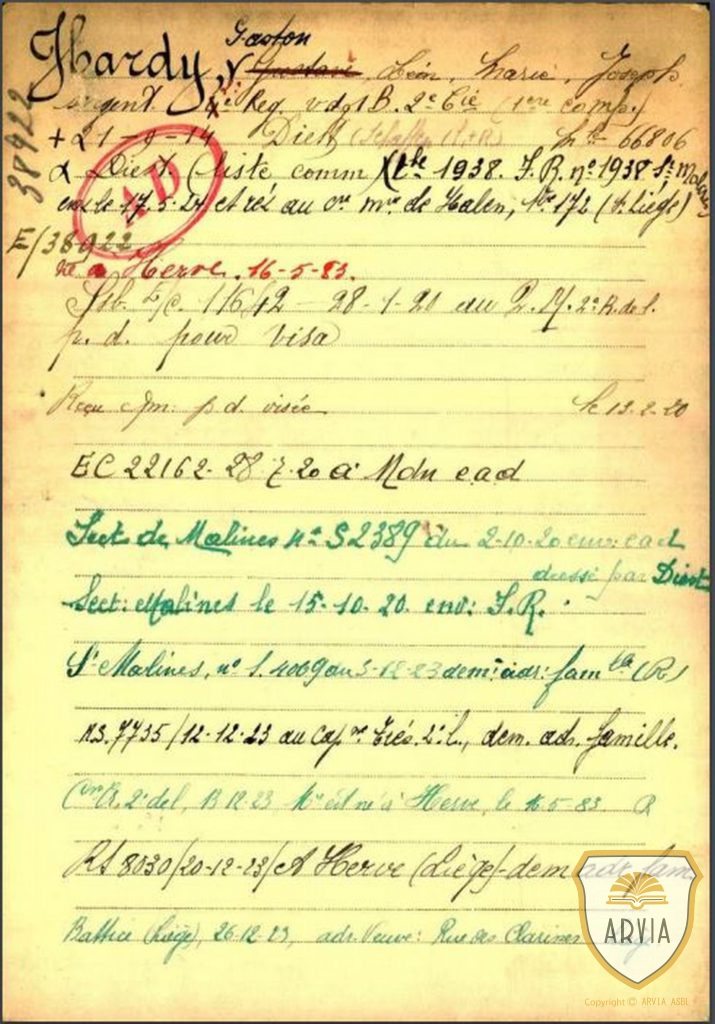 Gaston
Hardy, Gustave, Léon, Marie, Joseph
sergent 4e Reg. vdst B. 2e Cie (1ere comp.)
+ 21-9-14 Diest mle 66806
α Diest. (liste comm) 1938. I.R. no 1938 St Malines
38922
AD
em le 17.5.24 et rés au cre mre de Halen, No 172 (p. Liège)
E/38922
né à Herve. 16-5-83.
Ssb E/c. 116/42 - 28-1-20 au 2e R. de l.
p. d. pour visa
Reçu p d. visée le 13-2-20
EC 22162. 28-7-20 à Mdn ead
Sect de Malines no S2389 du 2-10-20 env: ead
dressé par Diest
Sect: Malines le 15-10-20. env: I.R.
St Malines, no S. 4069 du 3-12-23 demt adr: famlle (R)
RS. 7735/12-12-23 au Capne 2e l., dem. adr. famille.
2e del, 13-12-23 Mre est né à Herve, le 16-5-83 R
RS 8030/20-12-23/ A Herve (Liège) - dem adr fam
Battice (Liège), 26-12-23, adr. Veuve: Rue des Clarisses
ARVIA
Copyright © ARVIA ASBL